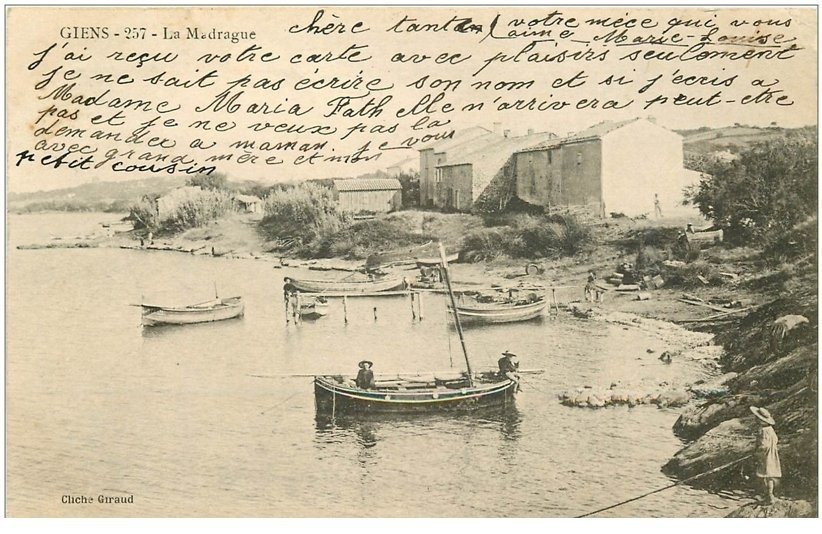 GIENS - 257 - La Madrague
chère tantan votre mèce qui vous
aime Marie-Louise
J'ai reçu votre carte avec plaisirs seulement
je ne sait pas écrire son nom et si j'ecris a
Madame Maria Fath elle n'arrivera peut-etre
pas et je ne veux pas la
demander a maman. je vous
avec grand mère et mon
petit cousin
Cliche Giraud